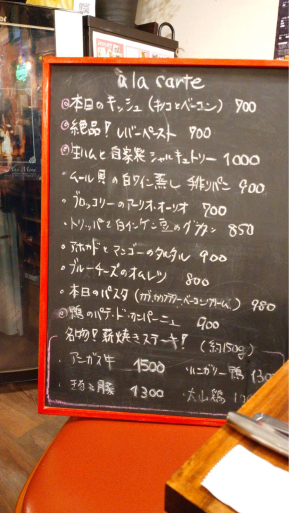 à la carte
◎本日のキッシュ（キノコとベーコン） 900
◎絶品！レバーペースト 700
◎生ハムと自家製シャルキュトリー 1000
・ムール貝の白ワイン蒸し 手作りパン 900
・ブロッコリーのアーリオ・オーリオ 700
・トリッパと白インゲン豆のグラタン 850
・アボカドとマンゴーのタルタル 900
・ブルーチーズのオムレツ 800
・本日のパスタ ベーコンクリーム） 980
◎鴨のパテ・ド・カンパーニュ 900
名物！薪焼きステーキ！（約150g）
・アンガス牛 1500 ・ハンガリー鴨
豚 1300 ・大山鶏